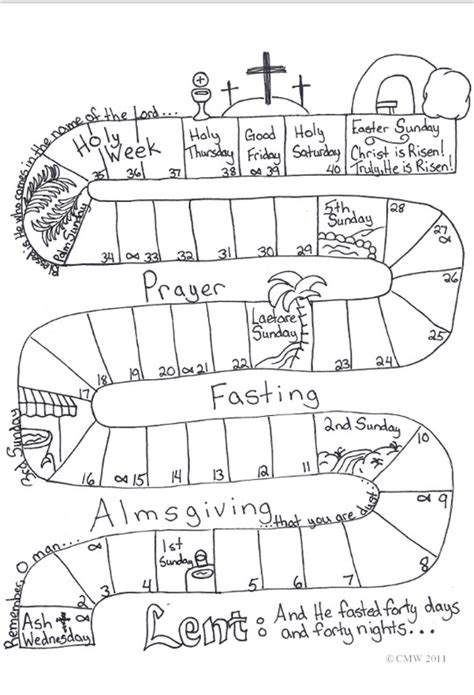 Blessed is He who comes in the name of the Lord...
Holy
Week
Holy
Thursday
Good
Friday
Holy
Saturday
Easter Sunday
Christ is Risen!
Truly, He is Risen!
35
36
37
38
∝ 39
40
Palm Sunday
34
∝ 33
32
31
30
29
5th
Sunday
28
27
∝
26
25
Prayer
Laetare
Sunday
17
18
19
20 ∝ 21
22
23
24
Fasting
3rd Sunday
2nd Sunday
16
∝ 15
14
13
12
11
10
∝ 9
8
Almsgiving
...that you are dust...
Remember, O man...
∝
1st
Sunday
2
3
4
5
6
7
Ash
Wednesday
Lent:
And He fasted forty days
and forty nights...
© CMW 2011